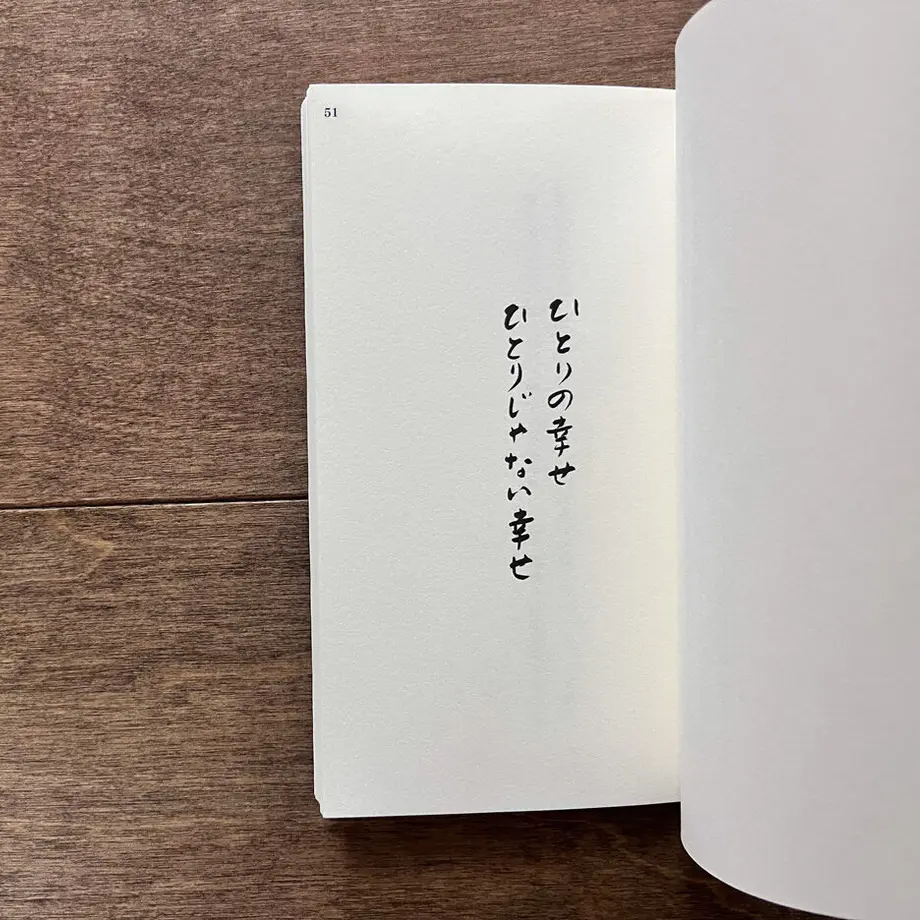 51
ひとりの幸せ
ひとりじゃない幸せ